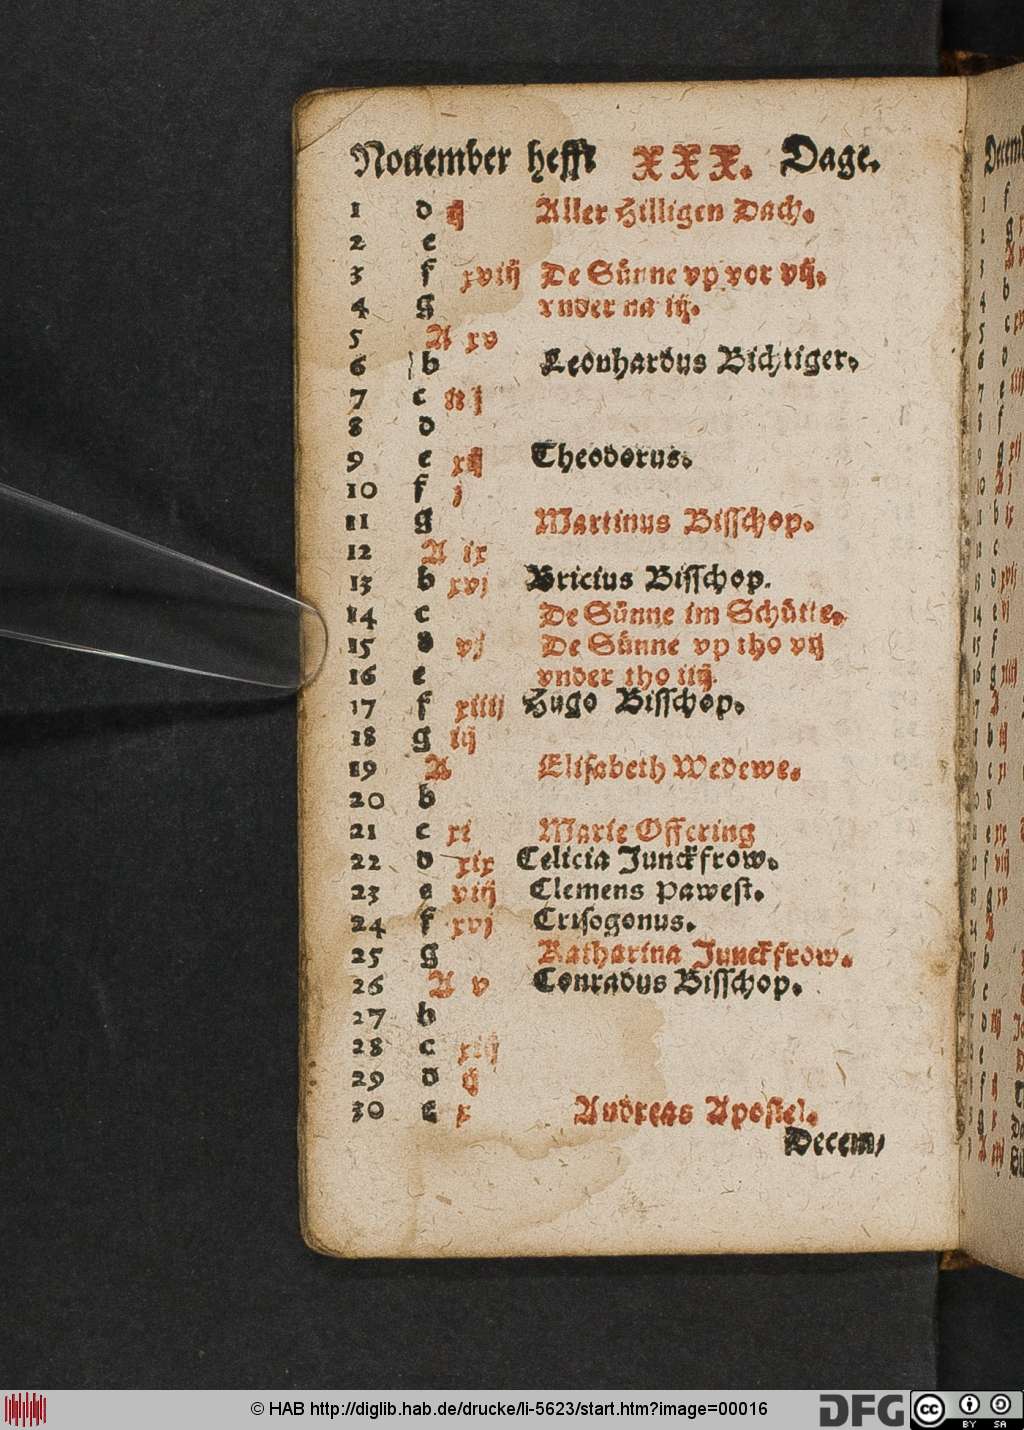 Nouember hefft XXX. Dage.
1 d ij Aller Hilligen Dach.
2 e
3 f xviij De Sünne vp vor vij.
4 g vnder na iij.
5 A xv
6 b Leonhardus Bichtiger.
7 c
8 d
9 e xij Theodorus.
10 f j
11 g Martinus Bisschop.
12 A ix
13 b xvj Bricius Bisschop.
14 c De Sünne im Schütte.
15 d vj De Sünne vp tho vij
16 e vnder tho iiij
17 f xiiij Hugo Bisschop.
18 g iij
19 A Elisabeth Wedewe.
20 b
21 c xi Marie Offering
22 d xix Celicia Junckfrow.
23 e viij Clemens Pawest.
24 f xvj Crisogonus.
25 g Katharina Junckfrow.
26 A v Conradus Bisschop.
27 b
28 c xiij
29 d ij
30 e x Andreas Apostel.
Decem/
© HAB http://diglib.hab.de/drucke/li-5623/start.htm?image=00016
DFG
cc BY SA